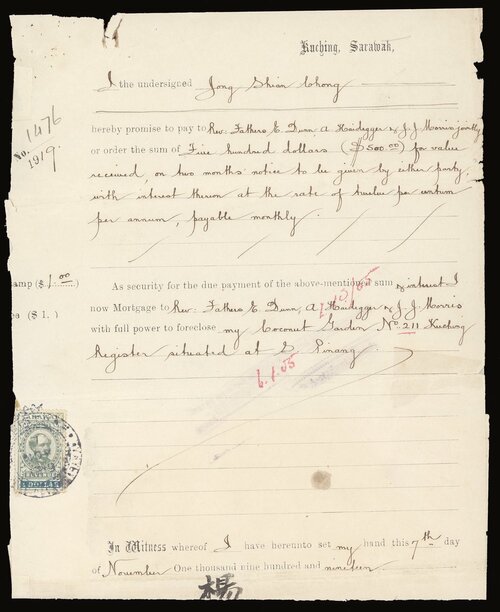 Kuching, Sarawak,
I the undersigned Jong Shian Chong
No. 1476
1919.
hereby promise to pay to Rev. Fathers E. Dunn, A. Haidegger & J. J. Morris jointly
or order the sum of Five hundred dollars ($500.00) for value
received, on two months notice to be given by either party,
with interest thereon at the rate of twelve per centum
per annum, payable monthly.
amp ($1.00)
As security for the due payment of the above-mentioned sum & interest I
($1. )
now Mortgage to Rev. Fathers E. Dunn, A. Haidegger & J. J. Morris
with full power to foreclose my Coconut Garden No. 211 Kuching
Register situated at S. Pinang.
In Witness whereof I have hereunto set my hand this 7th day
of November One thousand nine hundred and nineteen
楊